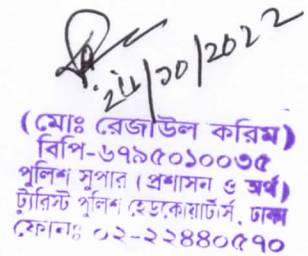 ২৪/১০/২০২২
(মোঃ রেজাউল করিম)
বিপি-৬৭৯৫০১০০৩৫
পুলিশ সুপার (প্রশাসন ও অর্থ)
ট্যুরিস্ট পুলিশ হেডকোয়ার্টার্স, ঢাকা
ফোনঃ ০২-২২৪৪০৫৭০